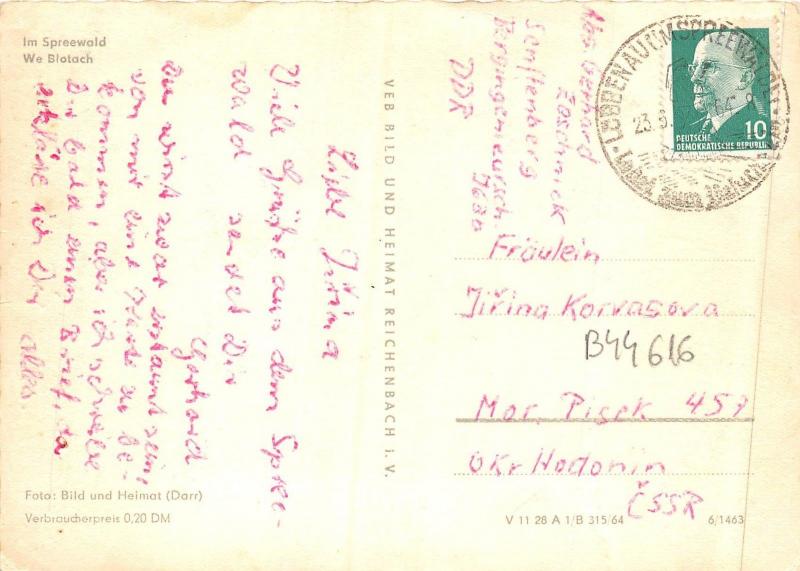 Im Spreewald
We Blotach
Liebe Jiřina
Viele Grüße aus dem Spree-
wald sendet Dir
Gerhard
Du wirst zwar erstaunt sein,
von mir eine Karte zu be-
kommen, aber ich schreibe
Dir bald einen Brief, da
erkläre ich Dir alles.
Foto: Bild und Heimat (Darr)
Verbraucherpreis 0,20 DM
VEB BILD UND HEIMAT REICHENBACH i. V.
Abs. Gerhard
Senftenberg
DDR
LÜBBENAU
23.8.
10
DEUTSCHE
DEMOKRATISCHE REPUBLIK
Fräulein
Jiřina Korvasova
B44616
Mor. Pisek 457
Okr Hodonin
ČSSR
V 11 28 A 1/B 315/64
6/1463